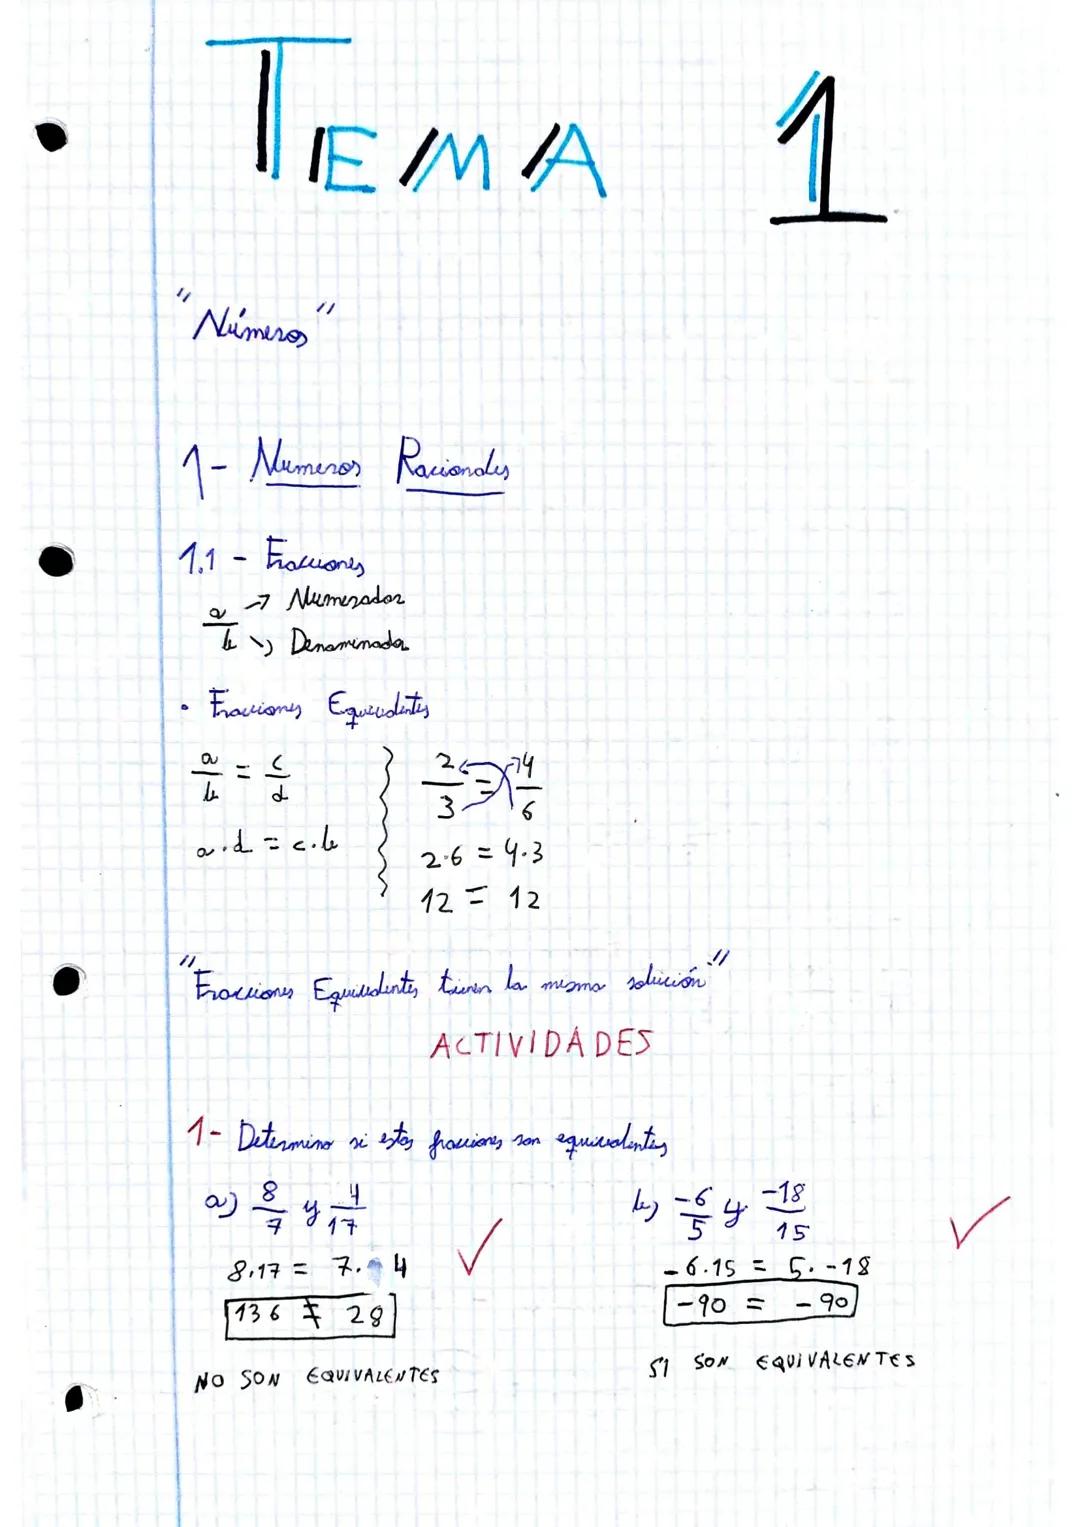 TEMA 1
"Números"
1- Numeros Racionales
1.1 - Fracciones
a/b → Numerador
↘ Denominador
• Fracciones Equivalentes
a/b = c/d
a·d = c·b
2/3 = 4/6
2·6 = 4·3
12 = 12
"Fracciones Equivalentes tienen la misma solución"
ACTIVIDADES
1- Determina si estas fracciones son equivalentes
a) 8/7 y 4/17
8·17 = 7·4
136 ≠ 28
NO SON EQUIVALENTES
b) -6/5 y -18/15
-6·15 = 5·-18
-90 = -90
SI SON EQUIVALENTES